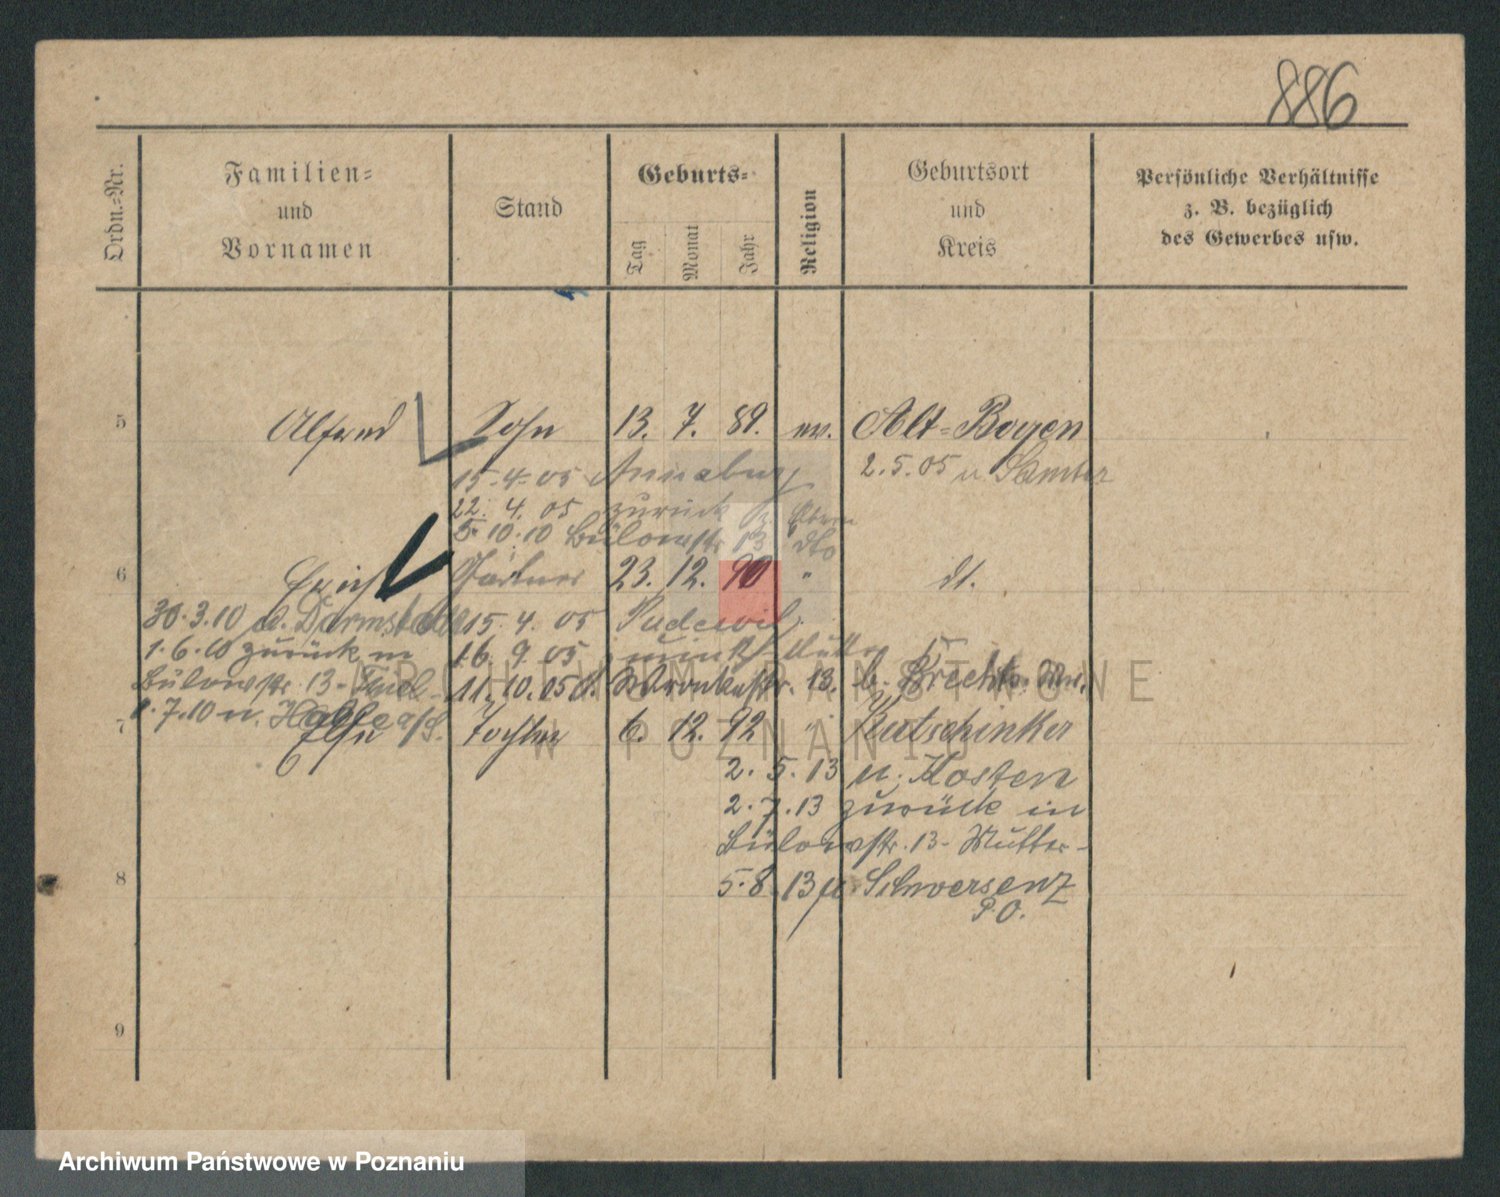 886
Ordn.=Nr.
Familien=
und
Vornamen
Stand
Geburts=
Tag
Monat
Jahr
Religion
Geburtsort
und
Kreis
Persönliche Verhältnisse
z. B. bezüglich
des Gewerbes usw.
5 Alfred Sohn 13. 7. 89. ev. Alt-Boyen
15.4.05 Annaburg 2.5.05 n. Samter
22. 4. 05 zurück
5.10.10 Bülowstr 13 dto
6 Erich Gärtner 23. 12. 90 " dt.
30.3.10 n. Darmstadt 15. 4. 05 Pudewitz
1.6.10 zurück in 16. 9. 05 zurück Mutter
Bülowstr. 13 - 11. 10. 05 Wronkerstr. 13. b. Brecht
1.7.10 n.
7 Else Tochter 6. 12. 92 " Kutschinker
2. 5. 13 n. Kosten
2.7.13 zurück in
Bülowstr. 13 - Mutter -
5.8.13 n. Schwersenz
P. O.
8
9
ARCHIWUM PAŃSTWOWE
W POZNANIU
Archiwum Państwowe w Poznaniu